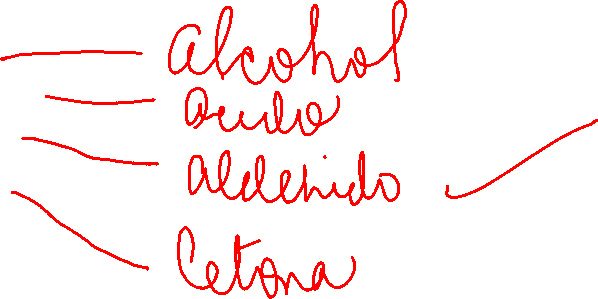 Alcohol
Acido
Aldehido
Cetona